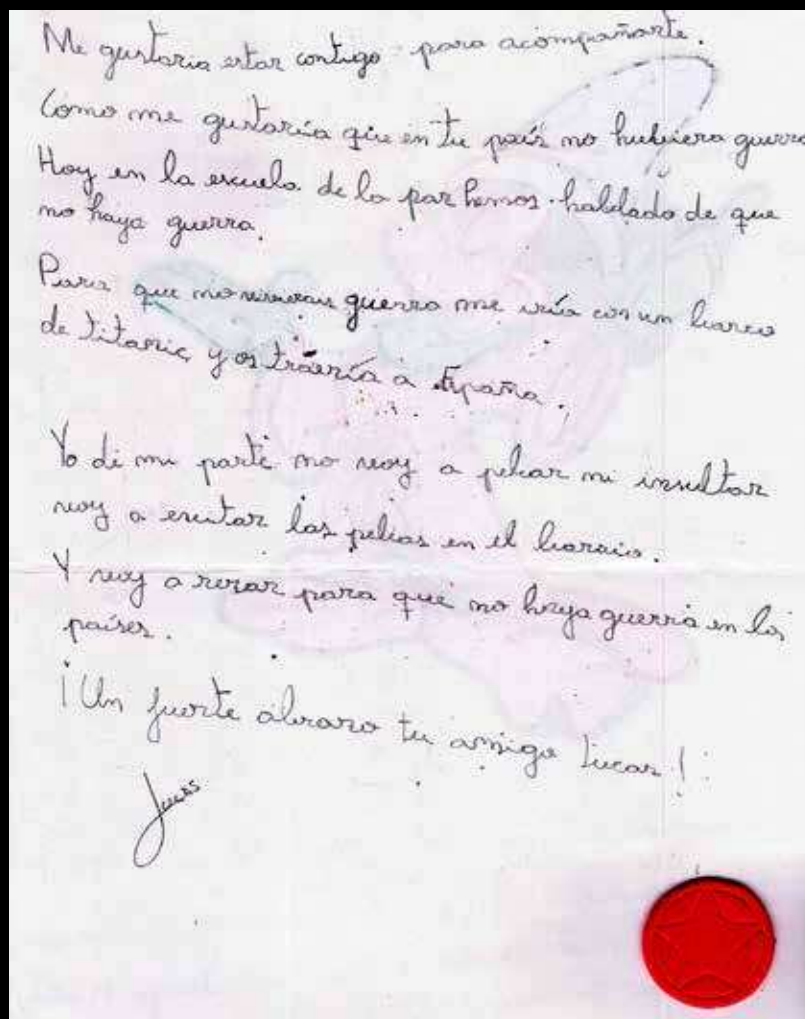 Me gustaria estar contigo para acompañarte.
Como me gustaría que en tu país no hubiera guerra
Hoy en la escuela de la paz hemos hablado de que
no haya guerra.
Para que no guerra me iría con un barco
de titanic y os traería a España.
Yo de mi parte no voy a pelear ni insultar
voy a evitar las peleas en el barrio.
Y voy a rezar para que no haya guerra en los
países.
¡Un fuerte abrazo tu amigo Lucas!
Lucas